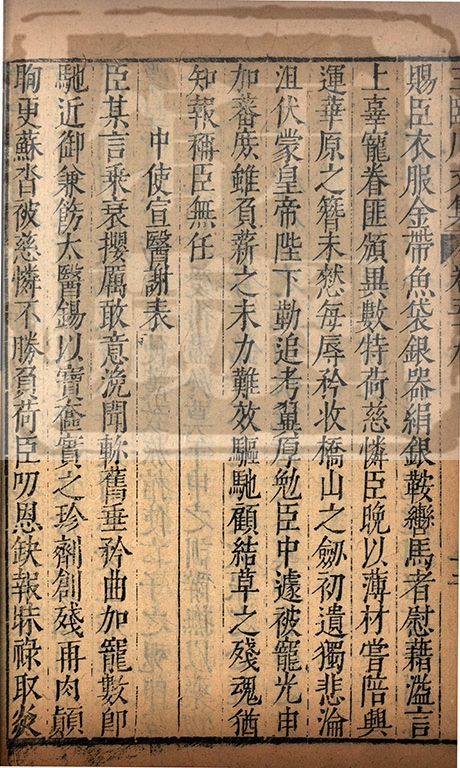 賜臣衣服金帶魚袋銀器絹銀鞍轡馬者慰藉溢言
上辜寵眷匪頒異數特荷慈憐臣晚以薄材嘗陪興
運華原之簪未憖每辱矜收橋山之劒初遺獨悲淪
沮伏蒙皇帝陛下勤追考翼厚勉臣中遽被寵光申
加蕃庶雖負薪之未力難效驅馳顧結草之殘魂猶
知報稱臣無任
中使宣醫謝表
臣某言乘衰攖厲敢意浼聞軫舊垂矜曲加寵數即
馳近御兼飭太醫錫以寶奩實之珍劑創殘再肉顛
眴更蘇沓被慈憐不勝負荷臣叨恩缺報恃祿取災